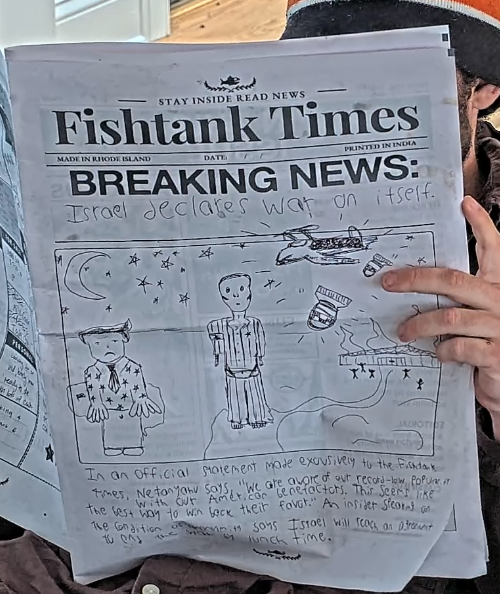 STAY INSIDE READ NEWS
Fishtank Times
MADE IN RHODE ISLAND DATE: PRINTED IN INDIA
BREAKING NEWS:
Israel declares war on itself.
In an official statement made exclusively to the Fishtank
Times, Netanyahu says, "We are aware of our record-low popularity
with our American benefactors. This seems like
the best way to win back their favor." An insider speaking on
the condition of anonymity says Israel will reach an agreement
to end the war by lunch time.